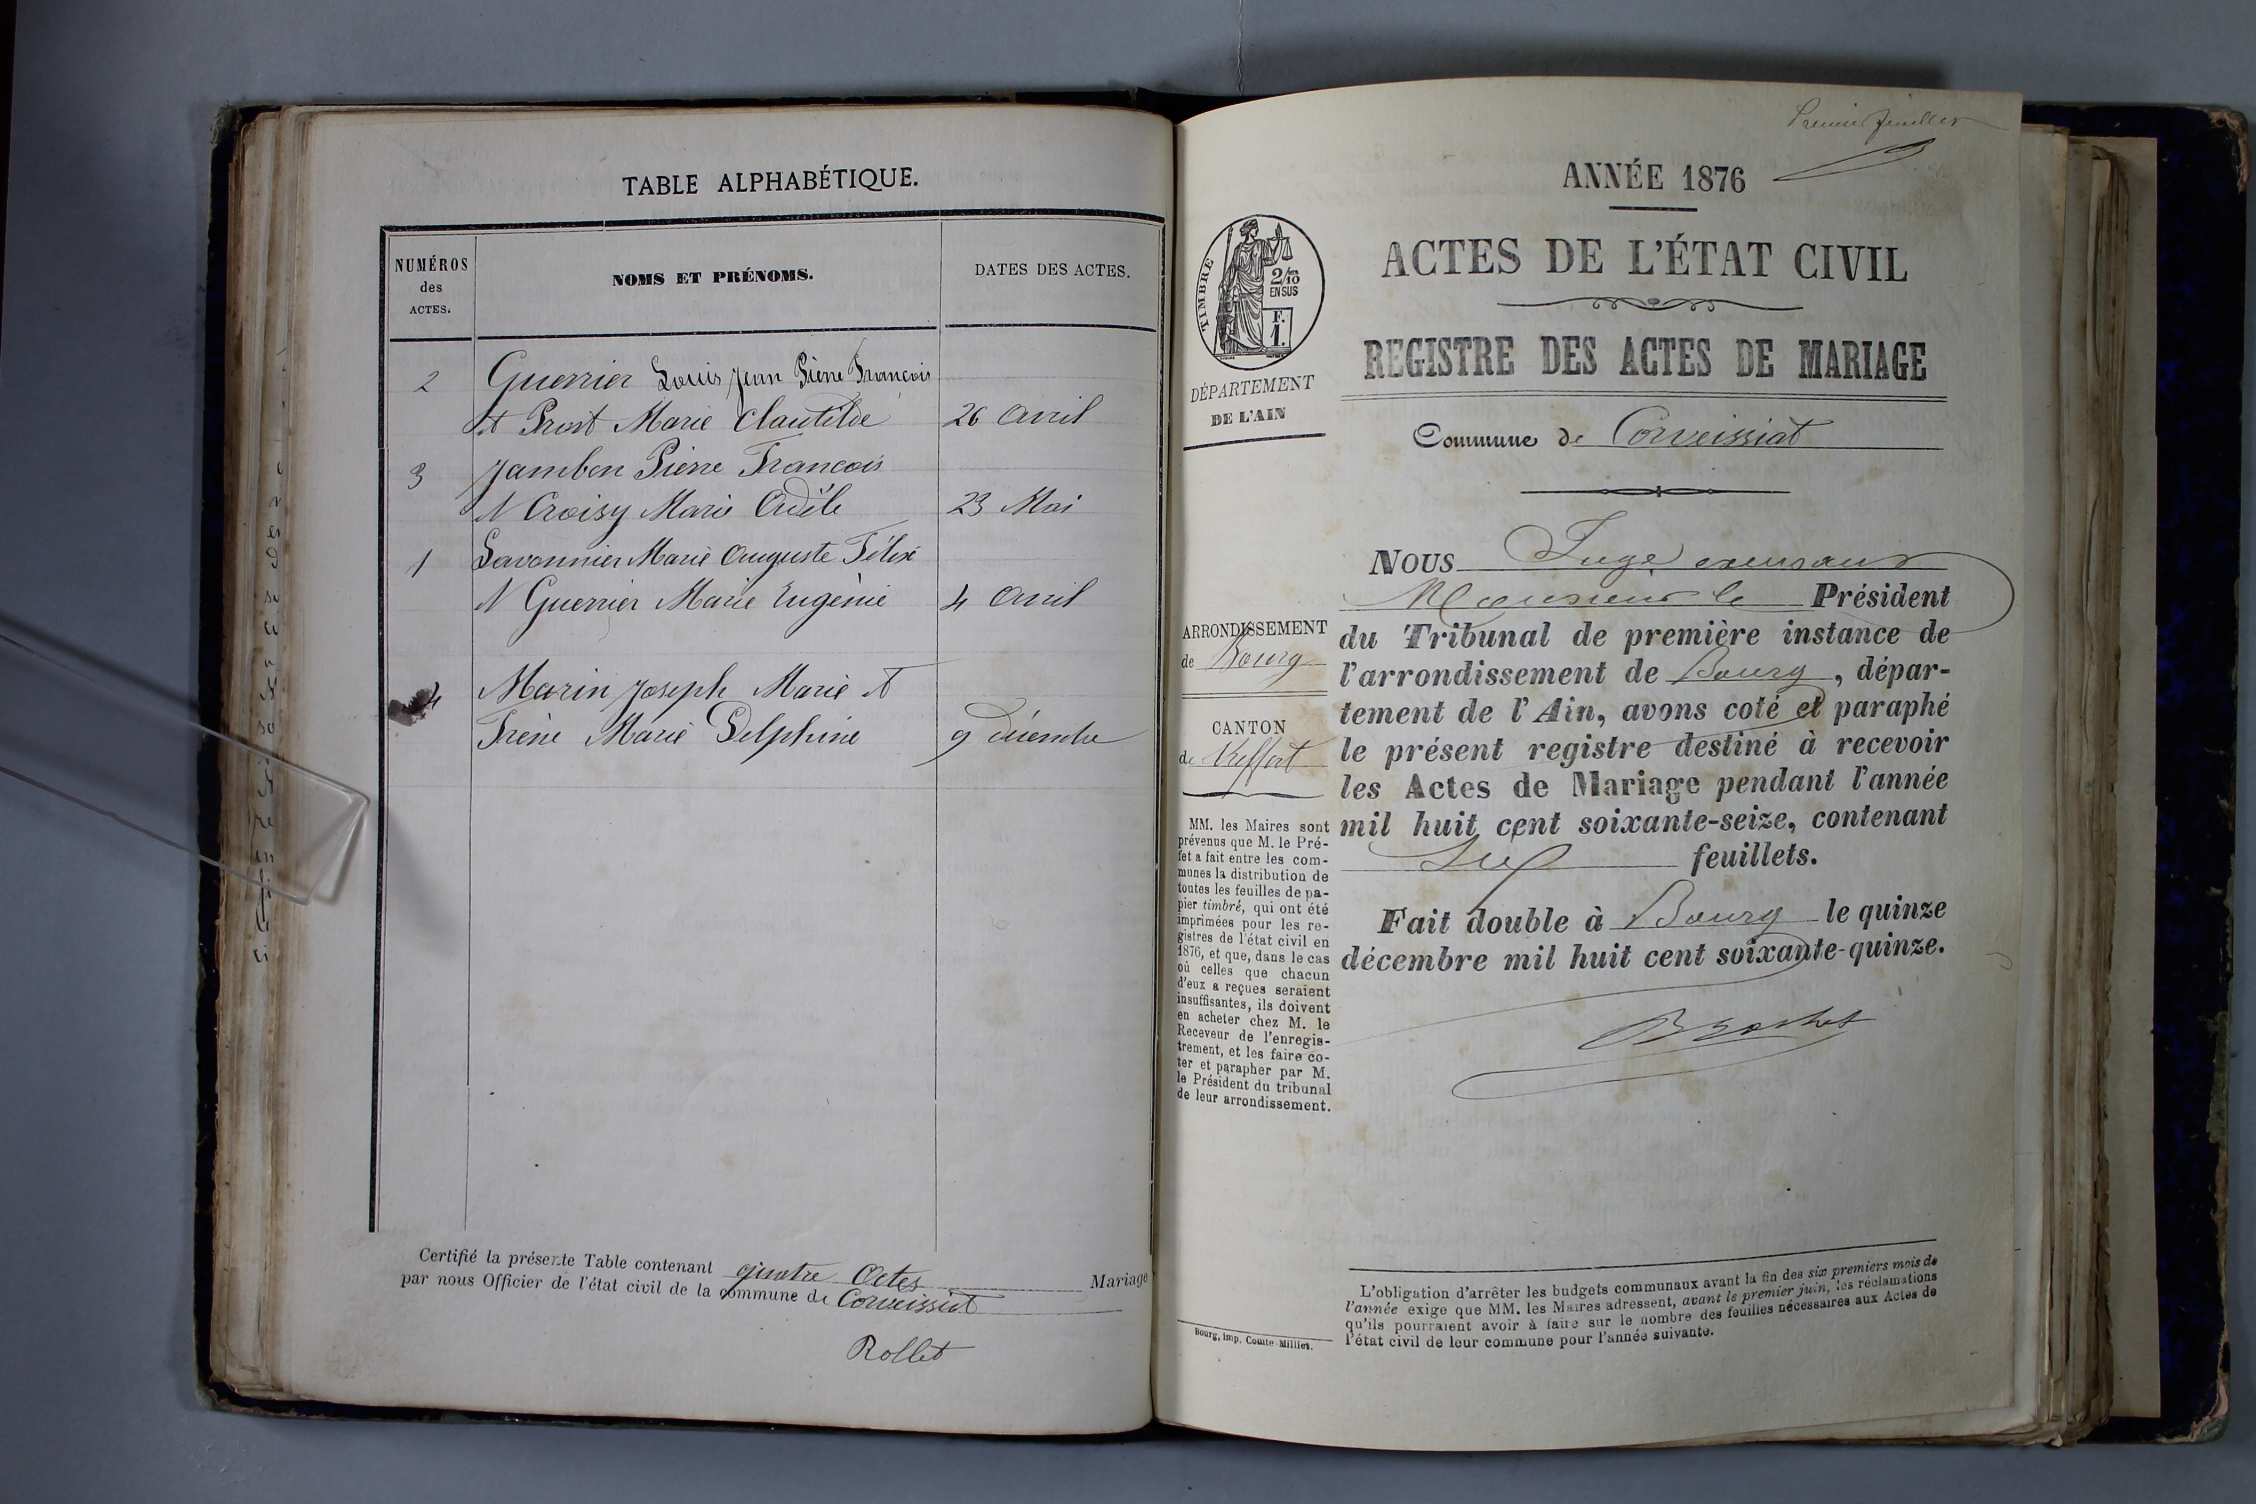 TABLE ALPHABÉTIQUE.
NUMÉROS
des
ACTES.
NOMS ET PRÉNOMS.
DATES DES ACTES.
2 Guerrier Louis Jean Pierre François
et Prost Marie Clautilde 26 avril
3 Jambon Pierre Francois
et Croisy Marie Adèle 23 Mai
1 Savonnier Marie Auguste Félix
et Guerrier Marie Eugènie 4 avril
4 Marin Joseph Marie et
Irène Marie Delphine 9 décembre
Certifié la présente Table contenant quatre Actes Mariage
par nous Officier de l'état civil de la commune de Corveissiat
Rollet
Premier feuillet
ANNÉE 1876
ACTES DE L'ÉTAT CIVIL
REGISTRE DES ACTES DE MARIAGE
Commune de Corveissiat
TIMBRE
2/10
EN SUS
F.
1.
DÉPARTEMENT
DE L'AIN
ARRONDISSEMENT
de Bourg
CANTON
de Treffort
MM. les Maires sont
prévenus que M. le Pré-
fet a fait entre les com-
munes la distribution de
toutes les feuilles de pa-
pier timbré, qui ont été
imprimées pour les re-
gistres de l'état civil en
1876, et que, dans le cas
où celles que chacun
d'eux a reçues seraient
insuffisantes, ils doivent
en acheter chez M. le
Receveur de l'enregis-
trement, et les faire co-
ter et parapher par M.
le Président du tribunal
de leur arrondissement.
Bourg, imp. Comte-Milliet.
NOUS Juge
Monsieur le Président
du Tribunal de première instance de
l'arrondissement de Bourg, dépar-
tement de l'Ain, avons coté et paraphé
le présent registre destiné à recevoir
les Actes de Mariage pendant l'année
mil huit cent soixante-seize, contenant
feuillets.
Fait double à Bourg le quinze
décembre mil huit cent soixante-quinze.
Brochet
L'obligation d'arrêter les budgets communaux avant la fin des six premiers mois de
l'année exige que MM. les Maires adressent, avant le premier juin, les réclamations
qu'ils pourraient avoir à faire sur le nombre des feuilles nécessaires aux Actes de
l'état civil de leur commune pour l'année suivante.